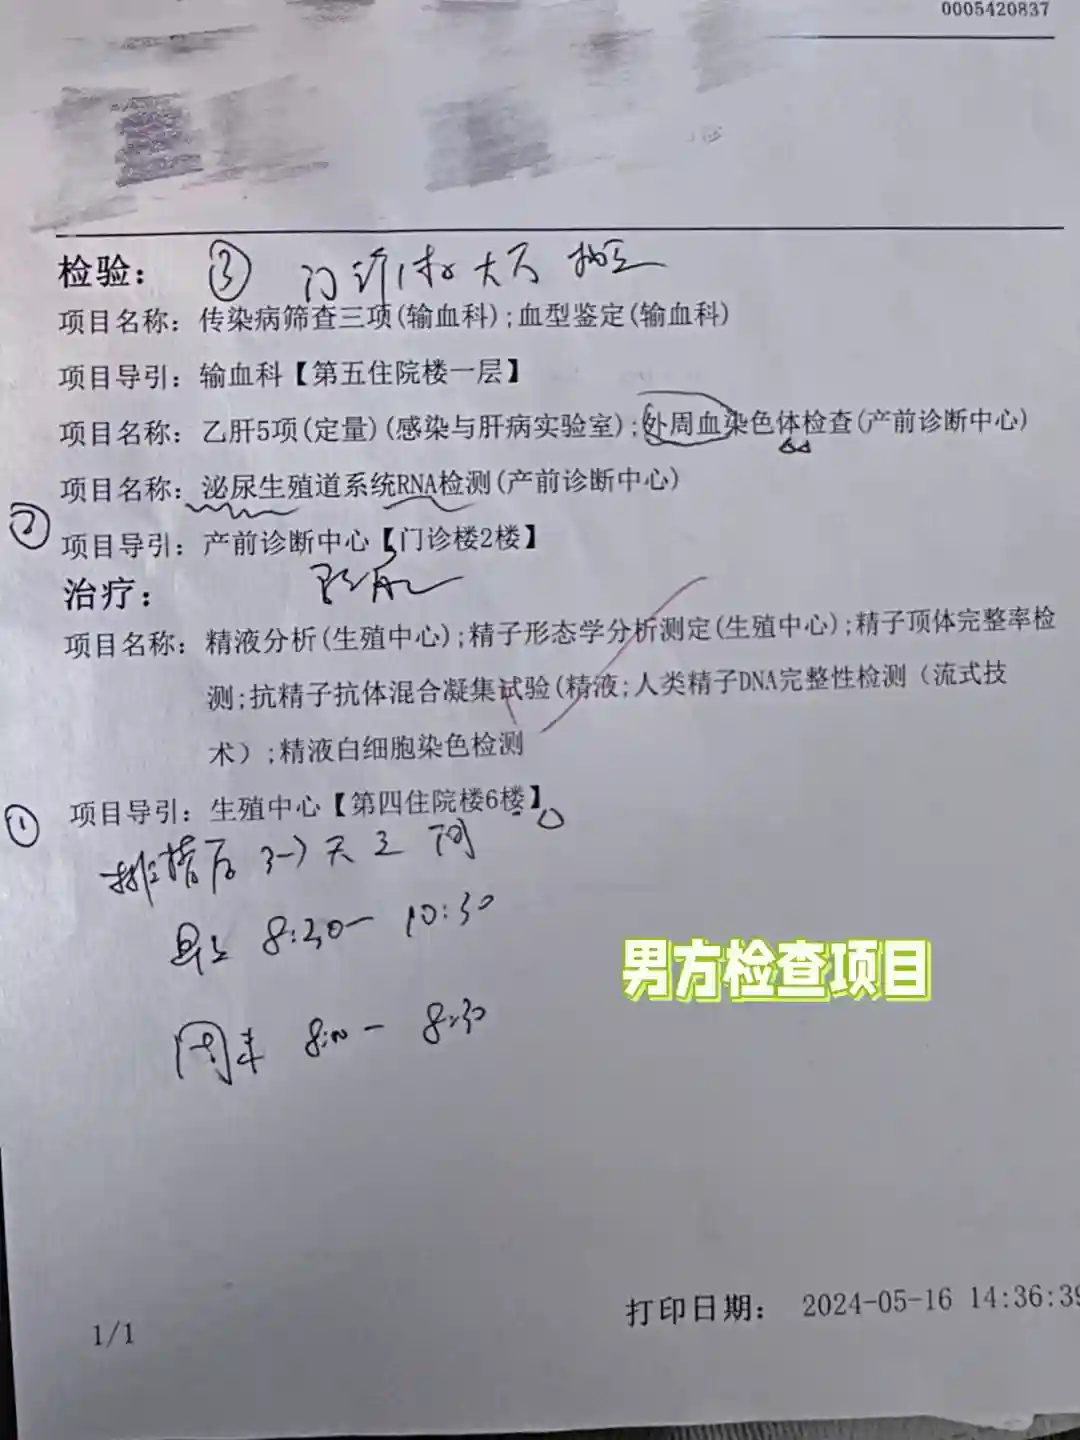 0005420837
检验： ③ 门诊 大厅
项目名称：传染病筛查三项(输血科);血型鉴定(输血科)
项目导引：输血科【第五住院楼一层】
项目名称：乙肝5项(定量)(感染与肝病实验室);外周血染色体检查(产前诊断中心)
项目名称：泌尿生殖道系统RNA检测(产前诊断中心)
② 项目导引：产前诊断中心【门诊楼2楼】
治疗：
项目名称：精液分析(生殖中心);精子形态学分析测定(生殖中心);精子顶体完整率检
测;抗精子抗体混合凝集试验(精液;人类精子DNA完整性检测（流式技
术）;精液白细胞染色检测
① 项目导引：生殖中心【第四住院楼6楼】
排精后 3-7天之间
早上 8:30-10:30
周末 8:00-8:30
男方检查项目
打印日期： 2024-05-16 14:36:39
1/1